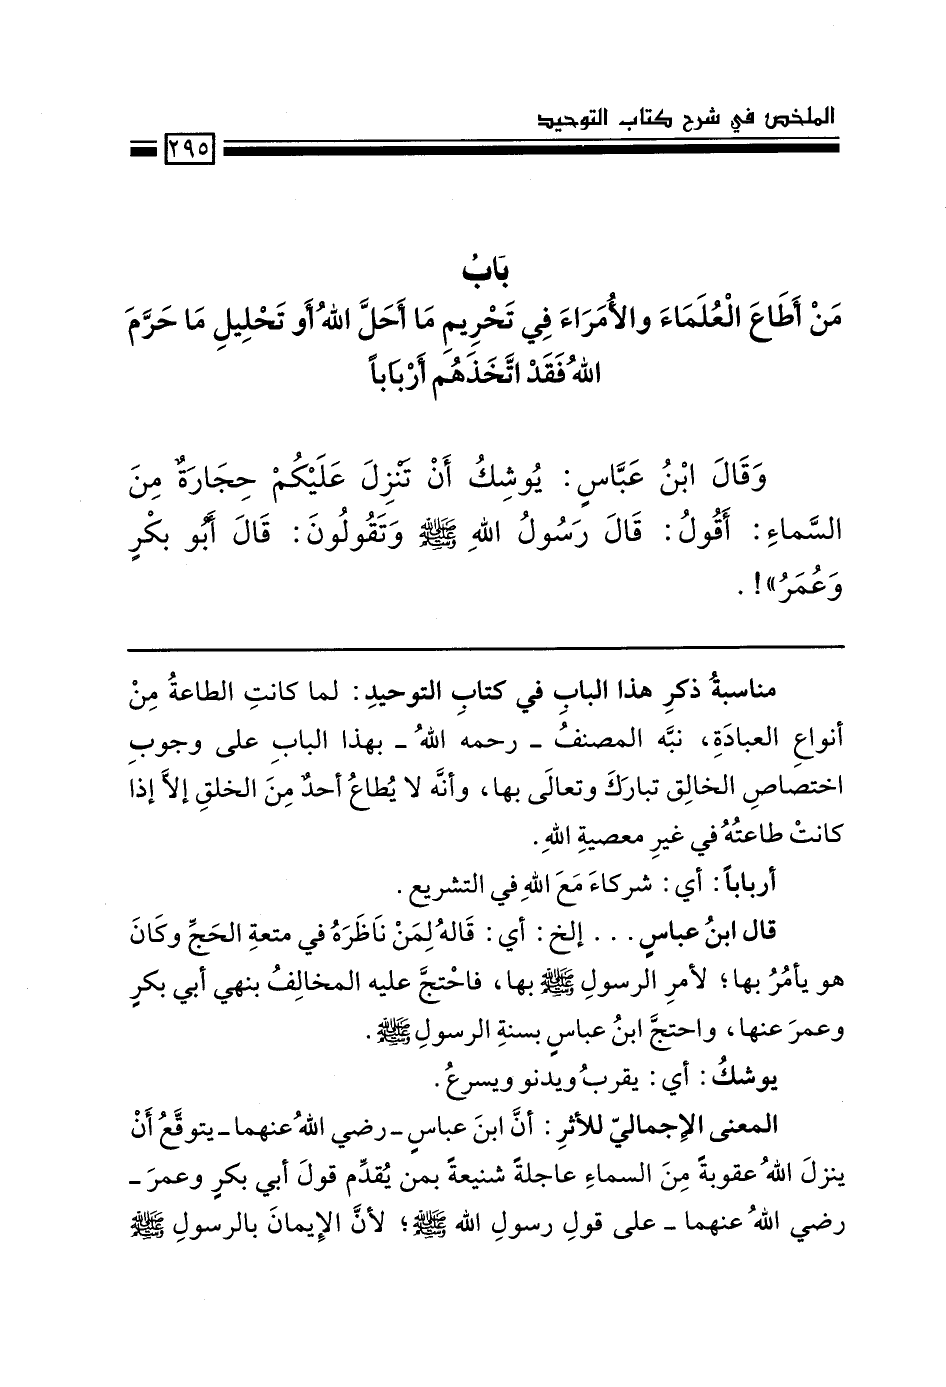 الملخص في شرح كتاب التوحيد
٢٩٥
بَابُ
مَنْ أَطَاعَ الْعُلَمَاءَ والأُمَرَاءَ فِي تَحْرِيمِ مَا أَحَلَّ اللهُ أَو تَحْلِيلِ مَا حَرَّمَ
اللهُ فَقَدْ اتَّخَذَهُم أَرْبَاباً
وَقَالَ ابْنُ عَبَّاسٍ: يُوشِكُ أَنْ تَنْزِلَ عَلَيْكُمْ حِجَارَةٌ مِنَ
السَّماءِ: أَقُولُ: قَالَ رَسُولُ اللهِ ﷺ وَتَقُولُونَ: قَالَ أَبُو بكْرٍ
وَعُمَرُ»! .
مناسبةُ ذكرِ هذا البابِ في كتابِ التوحيدِ: لما كانتِ الطاعةُ مِنْ
أنواعِ العبادَةِ، نبَّه المصنفُ ـ رحمه اللهُ ـ بهذا البابِ على وجوبِ
اختصاصِ الخالِق تبارَكَ وتعالَى بها، وأنَّه لا يُطاعُ أحدٌ مِنَ الخلقِ إلاَّ إذا
كانتْ طاعتُهُ في غيرِ معصيةِ اللهِ.
أرباباً: أي: شركاءَ مَعَ اللهِ في التشريع.
قال ابنُ عباسٍ... إلخ: أي: قَالهُ لِمَنْ نَاظَرَهُ في متعةِ الحَجِّ وكَانَ
هو يأمُرُ بها؛ لأمرِ الرسولِ ﷺ بها، فاحْتجَّ عليه المخالِفُ بنهي أبي بكرٍ
وعمرَ عنها، واحتجَّ ابنُ عباسٍ بسنةِ الرسولِ ﷺ.
يوشكُ: أي: يقربُ ويدنو ويسرعُ.
المعنى الإجماليّ للأثرِ: أنَّ ابنَ عباسٍ ـ رضي اللهُ عنهما ـ يتوقَّعُ أَنْ
ينزلَ اللهُ عقوبةً مِنَ السماءِ عاجلةً شنيعةً بمن يُقدِّم قولَ أبي بكرٍ وعمرَ ـ
رضي اللهُ عنهما ـ على قولِ رسولِ الله ﷺ؛ لأنَّ الإِيمانَ بالرسولِ ﷺ